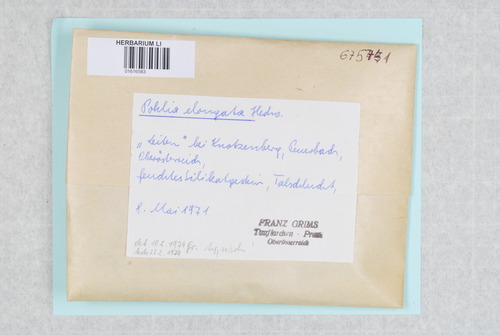 HERBARIUM LI
675
Pohlia elongata Hedw.
„Leiten" bei Knotzenberg,
Oberösterreich,
feuchtes Silikatgestein, Talschlucht,
8. Mai 1971
FRANZ GRIMS
Taufkirchen - Pram
Oberösterreich